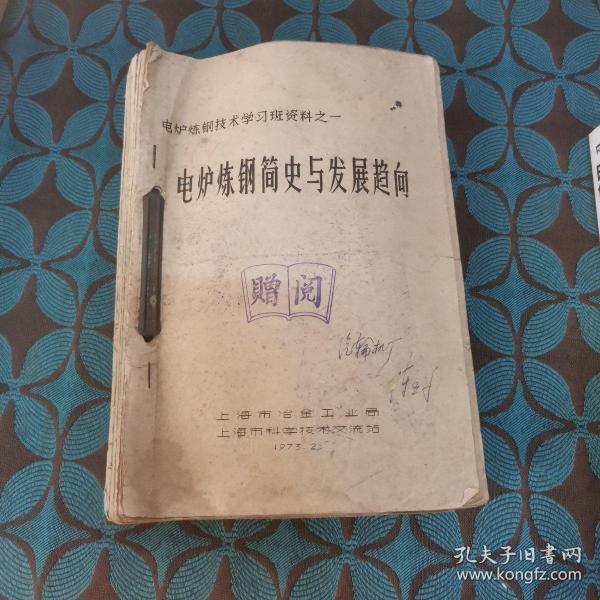 电炉炼钢技术学习班资料之一
电炉炼钢简史与发展趋向
赠阅
上海市冶金工业局
上海市科学技术交流站
1973.2
孔夫子旧书网
www.kongfz.com